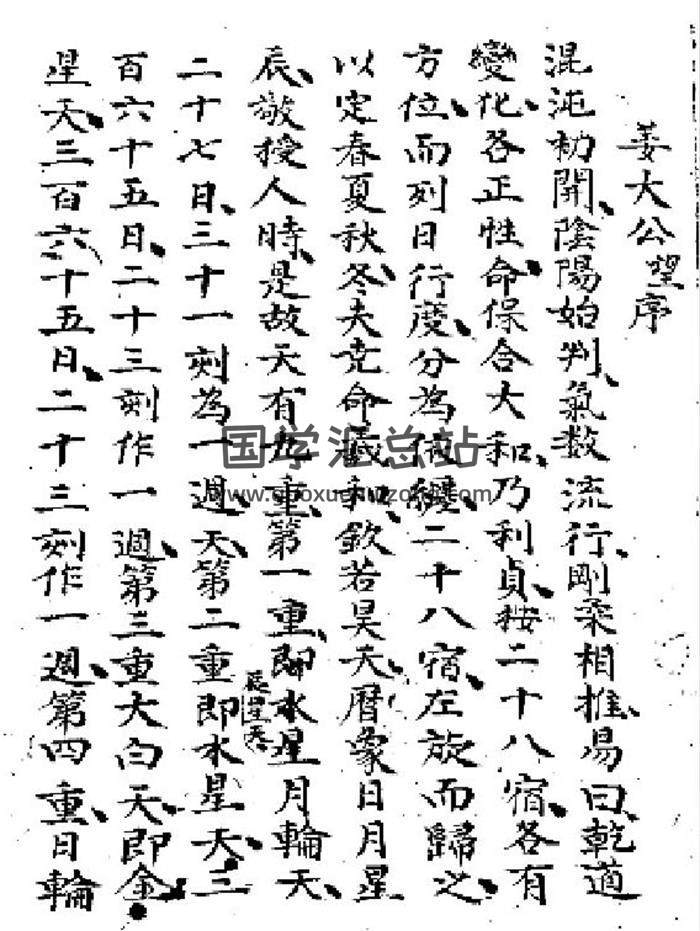 姜大公望序
混沌初開、陰陽始判、氣数流行、剛柔相推、易曰、乾道
變化、各正性命、保合大和、乃利貞、按二十八宿、各有
方位、而列日行度、分為依纏、二十八宿、左旋而歸之、
以定春夏秋冬、夫堯命羲和、欽若昊天、曆象日月星
辰、敬授人時、是故天有九重、第一重、即水星月輪天、
二十七日、三十一刻為一週天、第二重即水星天、三
辰星天
百六十五日、二十三刻作一週、第三重大白天、即金
星天、三百六十五日、二十三刻作一週、第四重、日輪
国学汇总站
www.guoxuehuizong.com